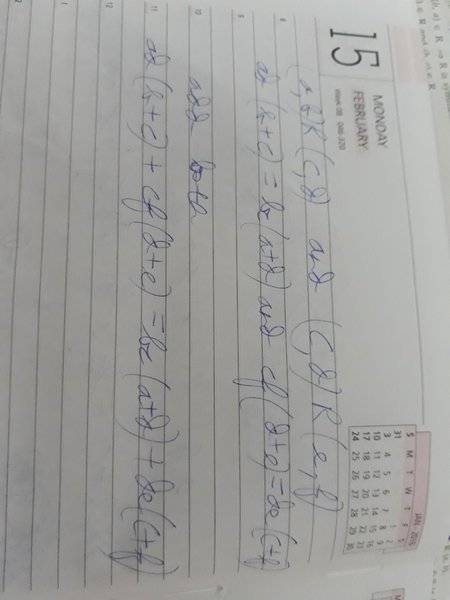 15
MONDAY
FEBRUARY
Week 08 046-320
JAN 2016
S M T W T F S
31 1 2
3 4 5 6 7 8 9
10 11 12 13 14 15 16
17 18 19 20 21 22 23
24 25 26 27 28 29 30
(a,b)R(c,d) and (c,d)R(e,f)
8
ad(b+c)=bc(a+d) and cf(d+e)=de(c+f)
9
10
add both
11
ad(b+c)+cf(d+e)=bc(a+d)+de(c+f)
12
1
2